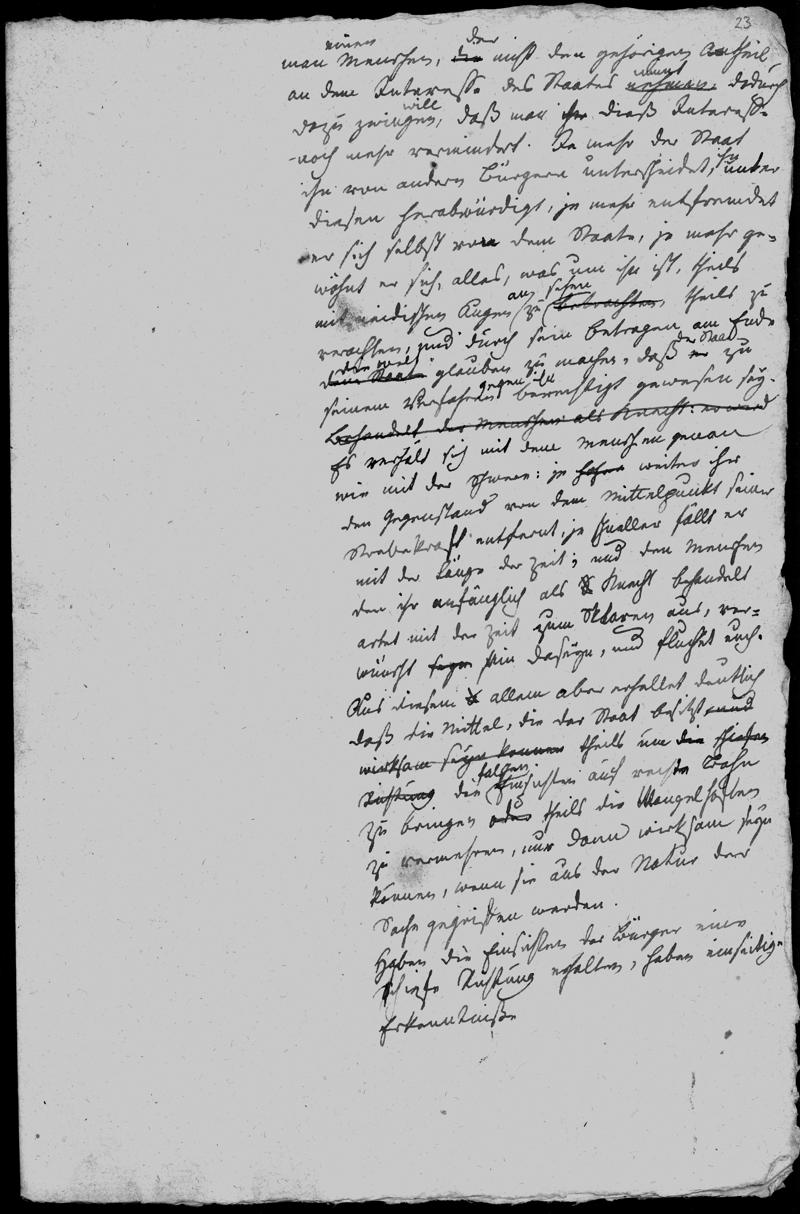 23
einen der
man Menschen, die nicht den gehörigen Antheil
nimmt
an dem Interesse des Staates nehmen, dadurch
will
dazu zwingen, daß man ihr dieß Interesse
noch mehr vermindert. Je mehr der Staat
ihn
ihn von andern Bürgern unterscheidet, unter
diesen herabwürdigt, je mehr entfremdet
er sich selbst von dem Staate, je mehr ge-
wöhnt er sich, alles, was um ihn ist, theils
an sehen
mit neidischen Augen zu betrachten, theils zu
verachten, und durch sein Betragen am Ende
die Welt der Staat
dem Staate glauben zu machen, daß er zu
gegen ihn
seinem Verfahren berechtigt gewesen sey.
Behandelt der Menschen als Knecht: er wird
Es verhält sich mit dem Menschen genau
wie mit der Schwere: je weiter ihr
den Gegenstand von dem Mittelpunkt seiner
Strebekraft entfernt, je schneller fällt er
mit der Länge der Zeit; und den Menschen
den ihr anfänglich als Knecht behandelt
artet mit der Zeit zum Sklaven aus, ver-
wünscht sein Daseyn, und fluchet euch.
Aus diesem allem aber erhellet deutlich
daß die Mittel, die der Staat besitzt, und
wirksam seyn können theils um die schiefen
falschen
Richtung die Einsichten auf rechte Bahn
zu bringen oder theils die Mangelhaften
zu vermehren, nur dann wirksam seyn
können, wenn sie aus der Natur der
Sache gegriffen werden.
Haben die Einsichten der Bürger eine
schiefe Richtung erhalten, haben einseitige
Erkenntniße